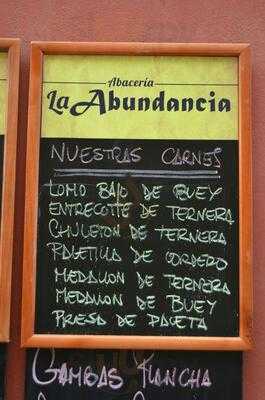 Abacería
La Abundancia
NUESTRAS CARNES
LOMO BAJO DE BUEY
ENTRECOTTE DE TERNERA
CHULETON DE TERNERA
PALETILLA DE CORDERO
MEDALLON DE TERNERA
MEDALLON DE BUEY
PRESA DE PALETA
GAMBAS PLANCHA